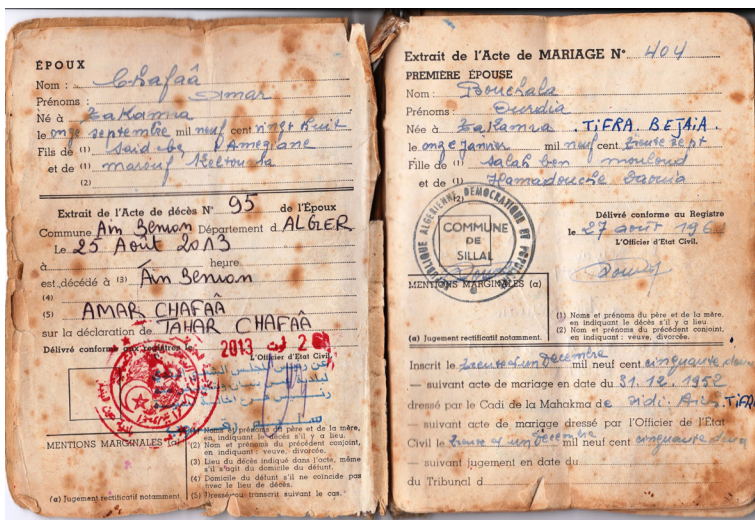 ÉPOUX
Nom : Chafaâ
Prénoms : Amar
Né à Zakamra
le onze septembre mil neuf cent vingt huit
Fils de (1) Said ben Ameziane
et de (1) marouf Keltouma
(2)
Extrait de l'Acte de décès N° 95 de l'Époux
Commune Ain Benian Département d ALGER
Le 25 Août 2013
à heure
est décédé à (3) Ain Benian
(4)
(5) AMAR CHAFAÂ
sur la déclaration de TAHAR CHAFAÂ
Délivré conforme aux registres le 2013
L'Officier d'Etat Civil,
MENTIONS MARGINALES (a)
(a) Jugement rectificatif notamment.
(1) Noms et prénoms du père et de la mère, en indiquant le décès s'il y a lieu.
(2) Nom et prénoms du précédent conjoint, en indiquant : veuve, divorcée.
(3) Lieu du décès indiqué dans l'acte, même s'il s'agit du domicile du défunt.
(4) Domicile du défunt s'il ne coïncide pas avec le lieu de décès.
(5) Dressé ou transcrit suivant le cas.
Extrait de l'Acte de MARIAGE N° 404
PREMIÈRE ÉPOUSE
Nom : Bouchala
Prénoms : Ourdia
Née à Zakamra . TiFRA. BEJAIA.
le onze janvier mil neuf cent trente sept
Fille de (1) Salah ben mouloud
et de (1) Hamadouche Daouia
(2)
RÉPUBLIQUE ALGÉRIENNE DÉMOCRATIQUE ET POPULAIRE
COMMUNE
DE
SILLAL
Délivré conforme au Registre
le 27 août 196
L'Officier d'Etat Civil.
MENTIONS MARGINALES (a)
(a) Jugement rectificatif notamment.
(1) Noms et prénoms du père et de la mère, en indiquant le décès s'il y a lieu.
(2) Nom et prénoms du précédent conjoint, en indiquant : veuve, divorcée.
Inscrit le trente et un décembre mil neuf cent cinquante deux
— suivant acte de mariage en date du 31.12.1952
dressé par le Cadi de la Mahakma de Sidi. Aich. TiFRA
— suivant acte de mariage dressé par l'Officier de l'Etat
Civil le trente et un décembre mil neuf cent cinquante deux
— suivant jugement en date du
du Tribunal d